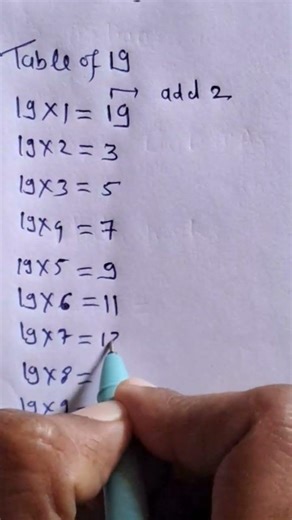 Table of 19
19×1 = 19 → add 2
19×2 = 3
19×3 = 5
19×4 = 7
19×5 = 9
19×6 = 11
19×7 = 13
19×8 =
19×9